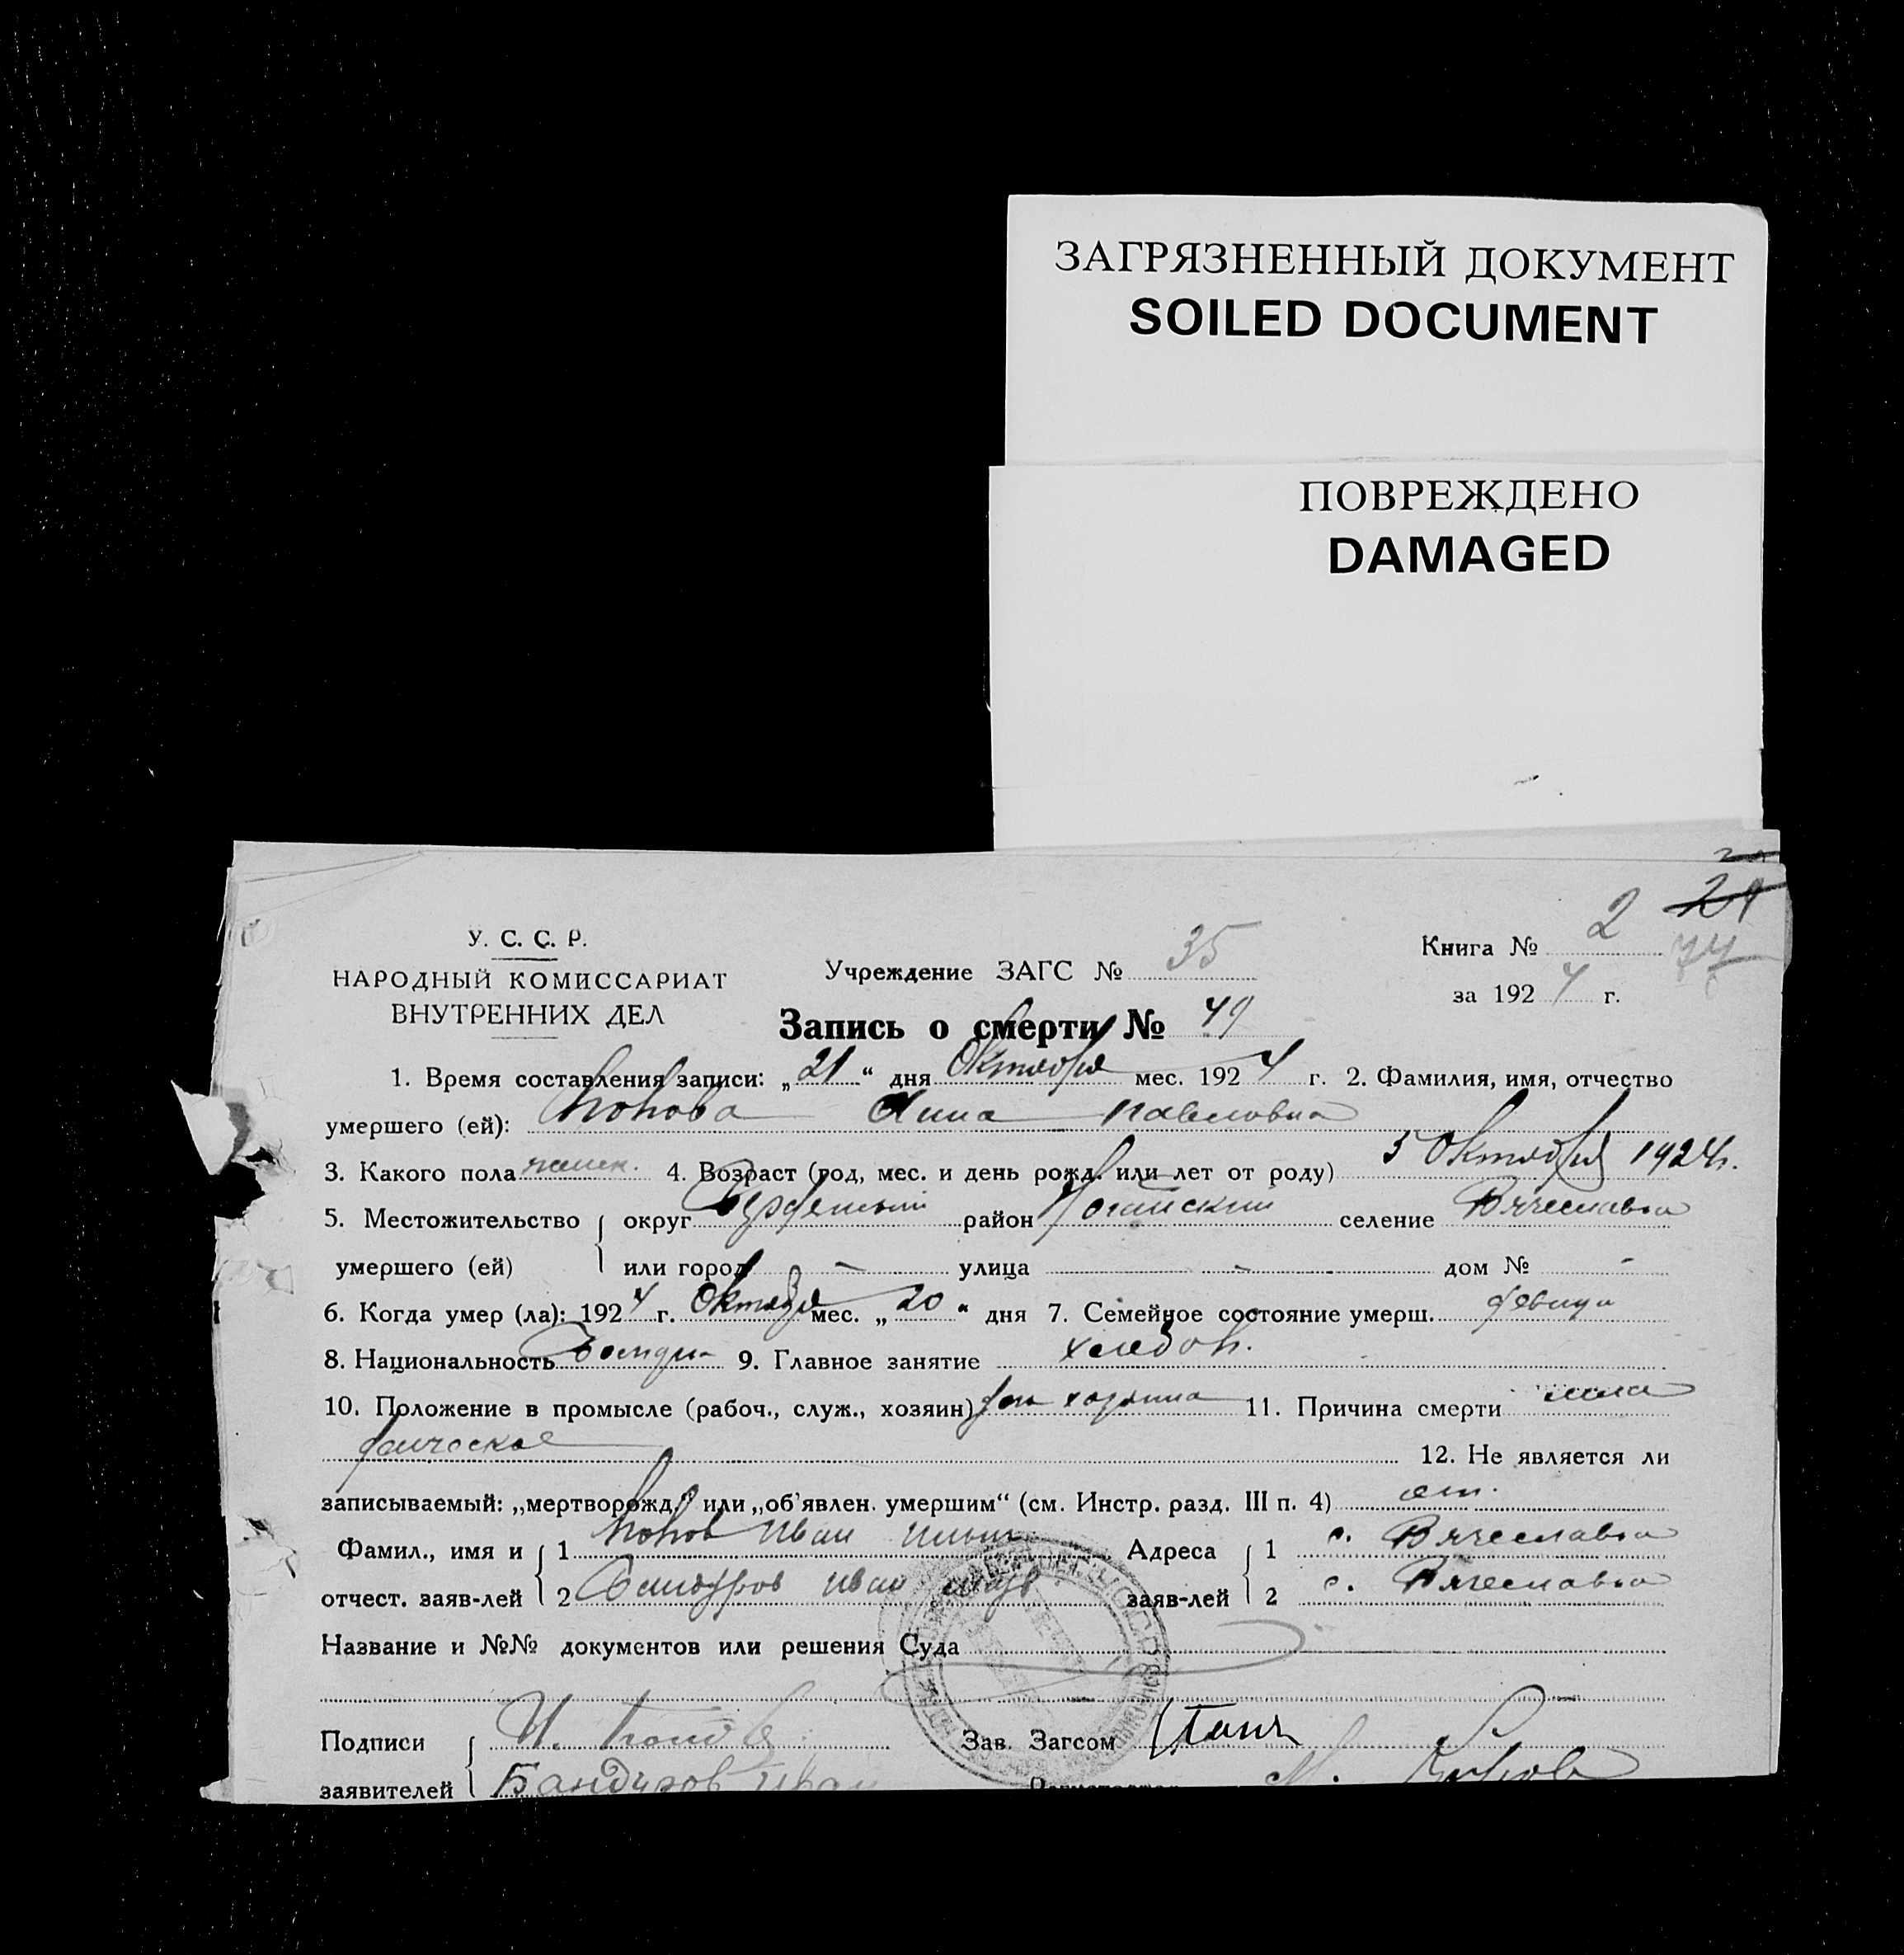 ЗАГРЯЗНЕННЫЙ ДОКУМЕНТ
SOILED DOCUMENT
ПОВРЕЖДЕНО
DAMAGED
У. С. С. Р.
НАРОДНЫЙ КОМИССАРИАТ
ВНУТРЕННИХ ДЕЛ
Учреждение ЗАГС № 35
Книга № 2
за 1924 г.
Запись о смерти № 49
1. Время составления записи: „21“ дня Октября мес. 1924 г. 2. Фамилия, имя, отчество
умершего (ей): Попова Анна Павловна
3. Какого пола женск. 4. Возраст (год, мес. и день рожд. или лет от роду) 5 Октября 1924г.
5. Местожительство округ район Ногайский селение Вячеславка
умершего (ей) или город - улица - дом № -
6. Когда умер (ла): 1924 г. Октября мес. „20“ дня 7. Семейное состояние умерш. девица
8. Национальность 9. Главное занятие хлебоп.
10. Положение в промысле (рабоч., служ., хозяин) дочь хозяина 11. Причина смерти
12. Не является ли
записываемый: „мертворожд.“ или „об'явлен. умершим“ (см. Инстр. разд. III п. 4)
Фамил., имя и 1 Попов Иван Адреса 1 с. Вячеславка
отчест. заяв-лей 2 Бандуров Иван заяв-лей 2 с. Вячеславка
Название и №№ документов или решения Суда
Подписи И. Попов Зав. Загсом
заявителей Бандуров Иван М.